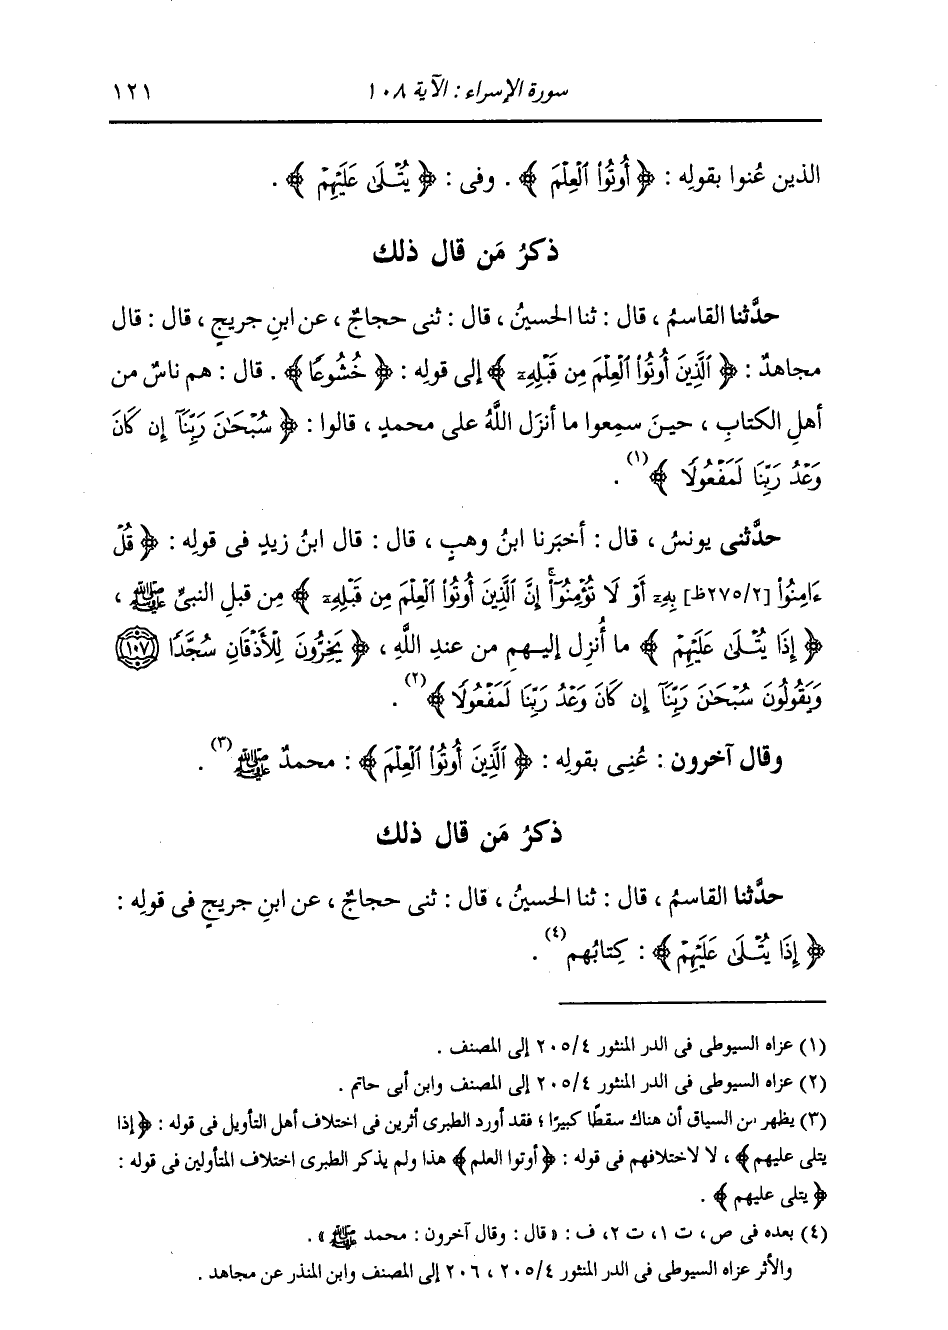 سورة الإسراء : الآية ١٠٨ ١٢١
الذين عُنوا بقولِه : ﴿ أُوتُوا۟ ٱلْعِلْمَ ﴾ . وفى : ﴿ يُتْلَىٰ عَلَيْهِمْ ﴾ .
ذكرُ مَن قال ذلك
حدَّثنا القاسمُ ، قال : ثنا الحسينُ ، قال : ثنى حجاجٌ ، عن ابنِ جريجٍ ، قال : قال
مجاهدٌ : ﴿ ٱلَّذِينَ أُوتُوا۟ ٱلْعِلْمَ مِن قَبْلِهِۦٓ ﴾ إلى قولِه : ﴿ خُشُوعًا ﴾ . قال : هم ناسٌ من
أهلِ الكتابِ ، حينَ سمِعوا ما أنزَل اللَّهُ على محمدٍ ، قالوا : ﴿ سُبْحَٰنَ رَبِّنَآ إِن كَانَ
وَعْدُ رَبِّنَا لَمَفْعُولًا ﴾(١) .
حدَّثنى يونسُ ، قال : أخبَرنا ابنُ وهبٍ ، قال : قال ابنُ زيدٍ فى قولِه : ﴿ قُلْ
ءَامِنُوا۟ [٢/٢٧٥ظ] بِهِۦٓ أَوْ لَا تُؤْمِنُوٓا۟ۚ إِنَّ ٱلَّذِينَ أُوتُوا۟ ٱلْعِلْمَ مِن قَبْلِهِۦٓ ﴾ مِن قبلِ النبىِّ ﷺ ،
﴿ إِذَا يُتْلَىٰ عَلَيْهِمْ ﴾ ما أُنزِل إليهم من عندِ اللَّهِ ، ﴿ يَخِرُّونَ لِلْأَذْقَانِ سُجَّدًا ﴿١٠٧﴾
وَيَقُولُونَ سُبْحَٰنَ رَبِّنَآ إِن كَانَ وَعْدُ رَبِّنَا لَمَفْعُولًا ﴾(٢) .
وقال آخرون : عُنِى بقولِه : ﴿ ٱلَّذِينَ أُوتُوا۟ ٱلْعِلْمَ ﴾ : محمدٌ ﷺ(٣) .
ذكرُ مَن قال ذلك
حدَّثنا القاسمُ ، قال : ثنا الحسينُ ، قال : ثنى حجاجٌ ، عن ابنِ جريجٍ فى قولِه :
﴿ إِذَا يُتْلَىٰ عَلَيْهِمْ ﴾ : كِتابُهم(٤) .
(١) عزاه السيوطى فى الدر المنثور ٢٠٥/٤ إلى المصنف .
(٢) عزاه السيوطى فى الدر المنثور ٢٠٥/٤ إلى المصنف وابن أبى حاتم .
(٣) يظهر من السياق أن هناك سقطًا كبيرًا ؛ فقد أورد الطبرى أثرين فى اختلاف أهل التأويل فى قوله : ﴿ إذا
يتلى عليهم ﴾ ، لا لاختلافهم فى قوله : ﴿ أوتوا العلم ﴾ هذا ولم يذكر الطبرى اختلاف المتأولين فى قوله :
﴿ يتلى عليهم ﴾ .
(٤) بعده فى ص ، ت ١، ت ٢، ف : « قال : وقال آخرون : محمد ﷺ » .
والأثر عزاه السيوطى فى الدر المنثور ٢٠٥/٤ ، ٢٠٦ إلى المصنف وابن المنذر عن مجاهد .